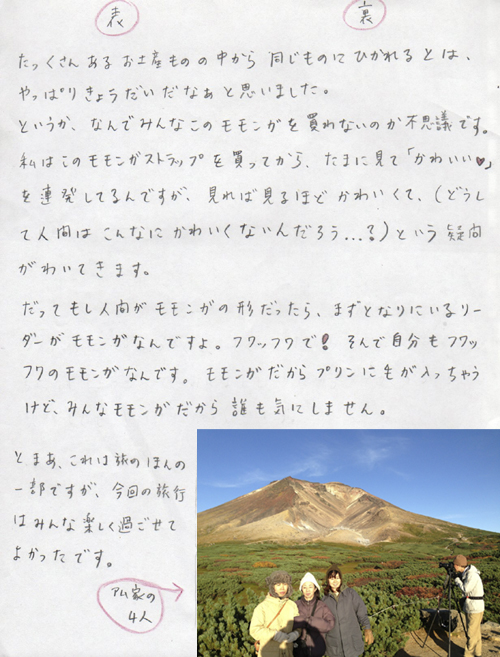 表 裏
たっくさんあるお土産ものの中から同じものにひかれるとは、
やっぱりきょうだいだなぁと思いました。
というか、なんでみんなこのモモンガを買れないのか不思議です。
私はこのモモンガストラップを買ってから、たまに見て「かわいい♥」
を連発してるんですが、見れば見るほどかわいくて、(どうし
て人間はこんなにかわいくないんだろう...?)という疑問
がわいてきます。
だってもし人間がモモンガの形だったら、まずとなりにいるリー
ダーがモモンガなんですよ。フワッフワで!そんで自分もフワッ
フワのモモンガなんです。モモンガだからプリンに毛が入っちゃう
けど、みんなモモンガだから誰も気にしません。
とまあ、これは旅のほんの
一部ですが、今回の旅行
はみんな楽しく過ごせて
よかったです。
アム家の
4人